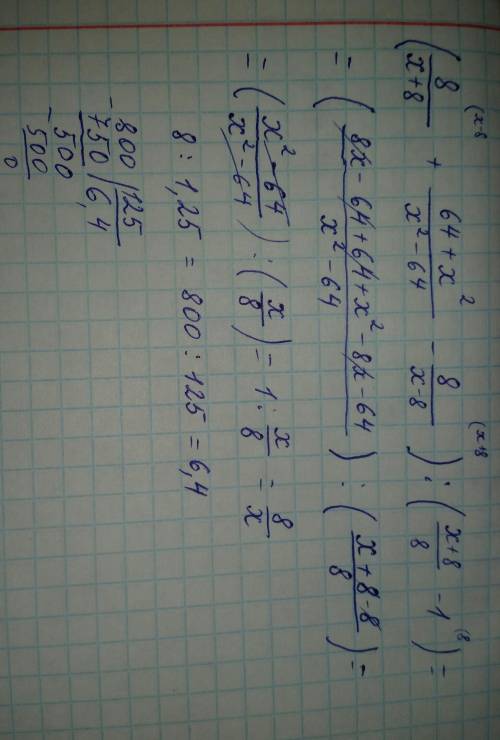 ( 8/(x+8) ⁽ˣ⁻⁸ + (64+x²)/(x²-64) - 8/(x-8) ⁽ˣ⁺⁸ ) : ( (x+8)/8 - 1 ⁽⁸ ) =
= ( (8x-64+64+x²-8x-64)/(x²-64) ) : ( (x+8-8)/8 ) =
= ( (x²-64)/(x²-64) ) : ( x/8 ) = 1 : x/8 = 8/x
8 : 1,25 = 800 : 125 = 6,4
-800 | 125
750 | 6,4
-500
500
0